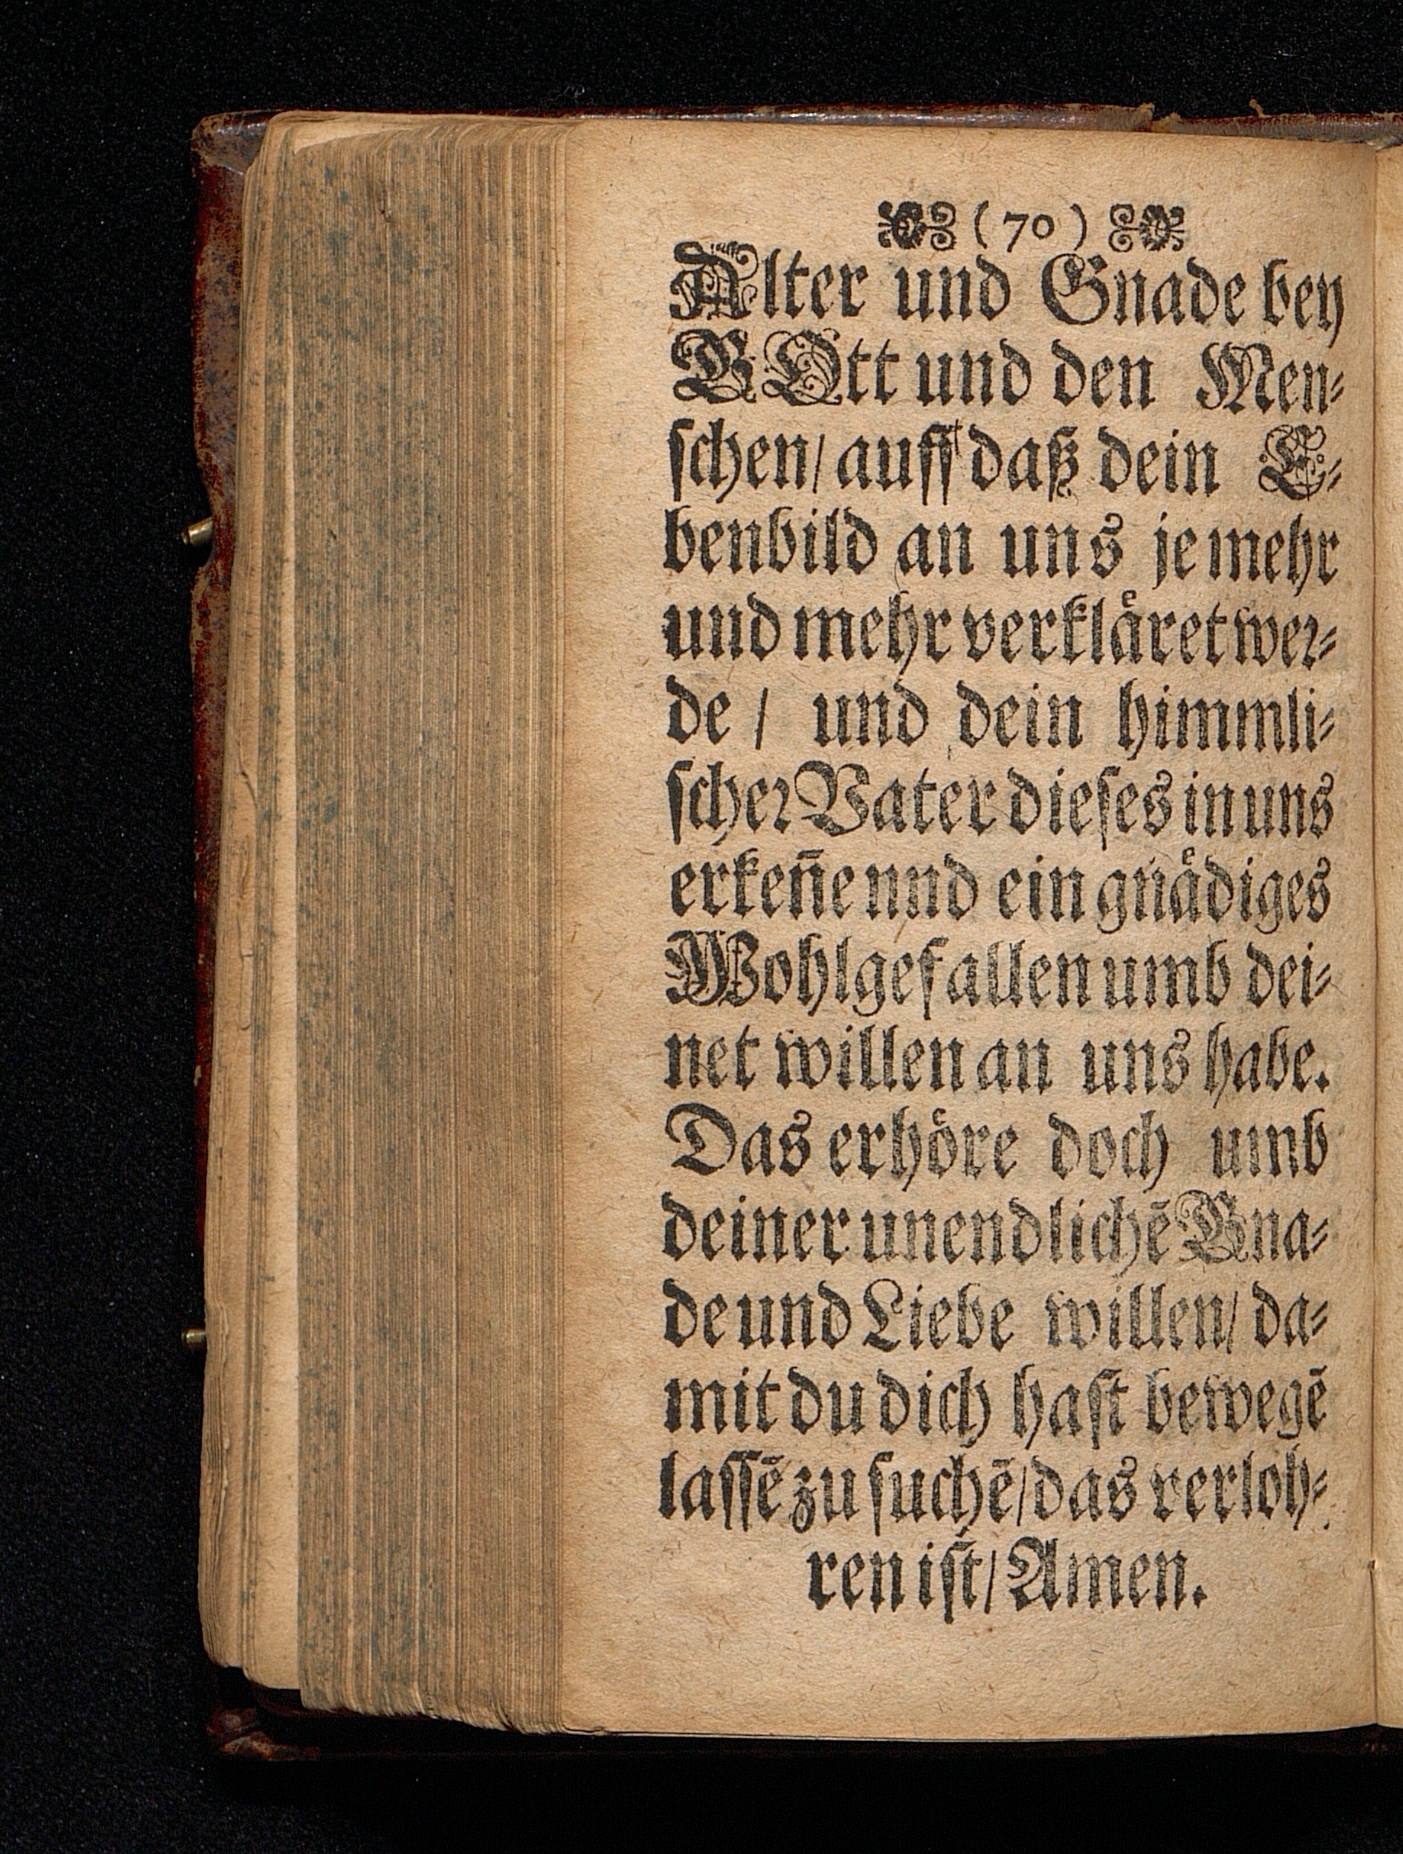 (70)
Alter und Gnade bey
GOtt und den Men-
schen/ auff daß dein E-
benbild an uns je mehr
und mehr verklåret wer-
de / und dein himmli-
scher Vater dieses in uns
erkeñe nnd ein gnådiges
Wohlgefallen umb dei-
net willen an uns habe.
Das erhöre doch umb
deiner unendlichē Gna-
de und Liebe willen/ da-
mit du dich hast bewegē
lassē zu suchē/ das verloh-
ren ist/ Amen.